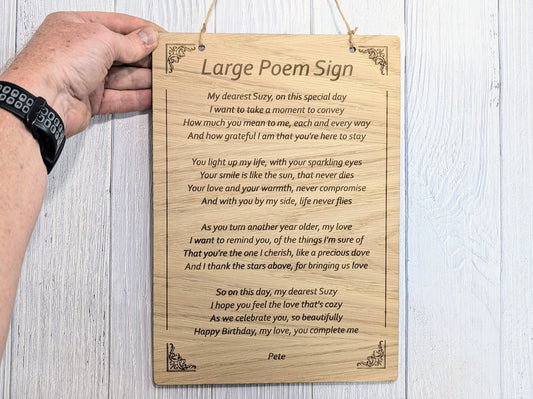 Large Poem Sign
My dearest Suzy, on this special day
I want to take a moment to convey
How much you mean to me, each and every way
And how grateful I am that you're here to stay
You light up my life, with your sparkling eyes
Your smile is like the sun, that never dies
Your love and your warmth, never compromise
And with you by my side, life never flies
As you turn another year older, my love
I want to remind you, of the things I'm sure of
That you're the one I cherish, like a precious dove
And I thank the stars above, for bringing us love
So on this day, my dearest Suzy
I hope you feel the love that's cozy
As we celebrate you, so beautifully
Happy Birthday, my love, you complete me
Pete